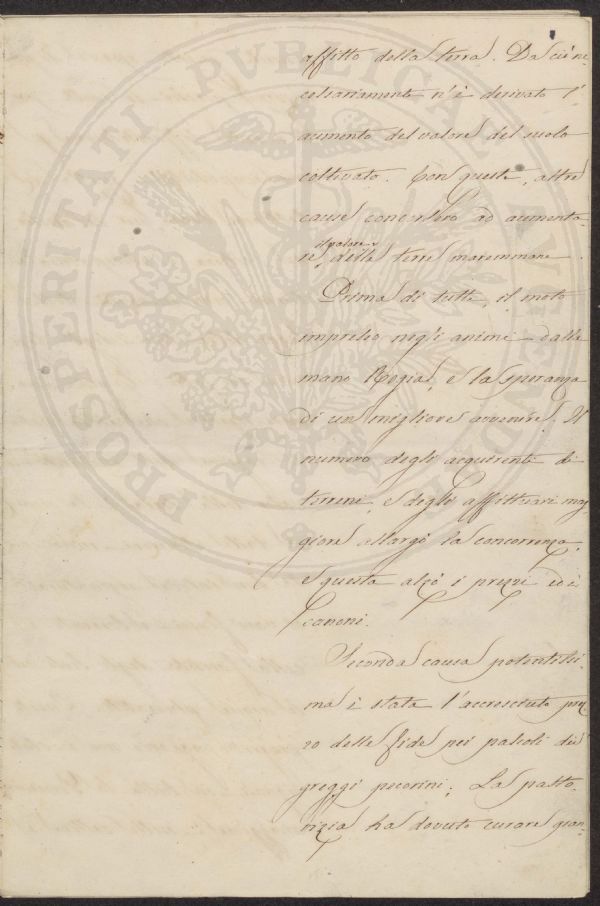 PROSPERITATI PUBLICAE AUGENDAE
affitto della terra. Da ciò ne-
cessariamente n'è derivato l'
aumento del valore del suolo
coltivato. Con queste, altre
cause concorsero ad aumenta-
il valore
re delle terre maremmane.
Prima di tutte, il moto
impresso negli animi dalla
mano Regia, e la speranza
di un migliore avvenire. Il
numero degli acquirenti di
terreni, e degli affittuari mag-
giore allargò la concorrenza,
e questa alzò i prezzi ed i
canoni.
Seconda causa potentissi-
ma è stata l'accresciuto prez-
zo delle fide pei pascoli dei
greggi pecorini. La pasto-
rizia ha dovuto curare gran-